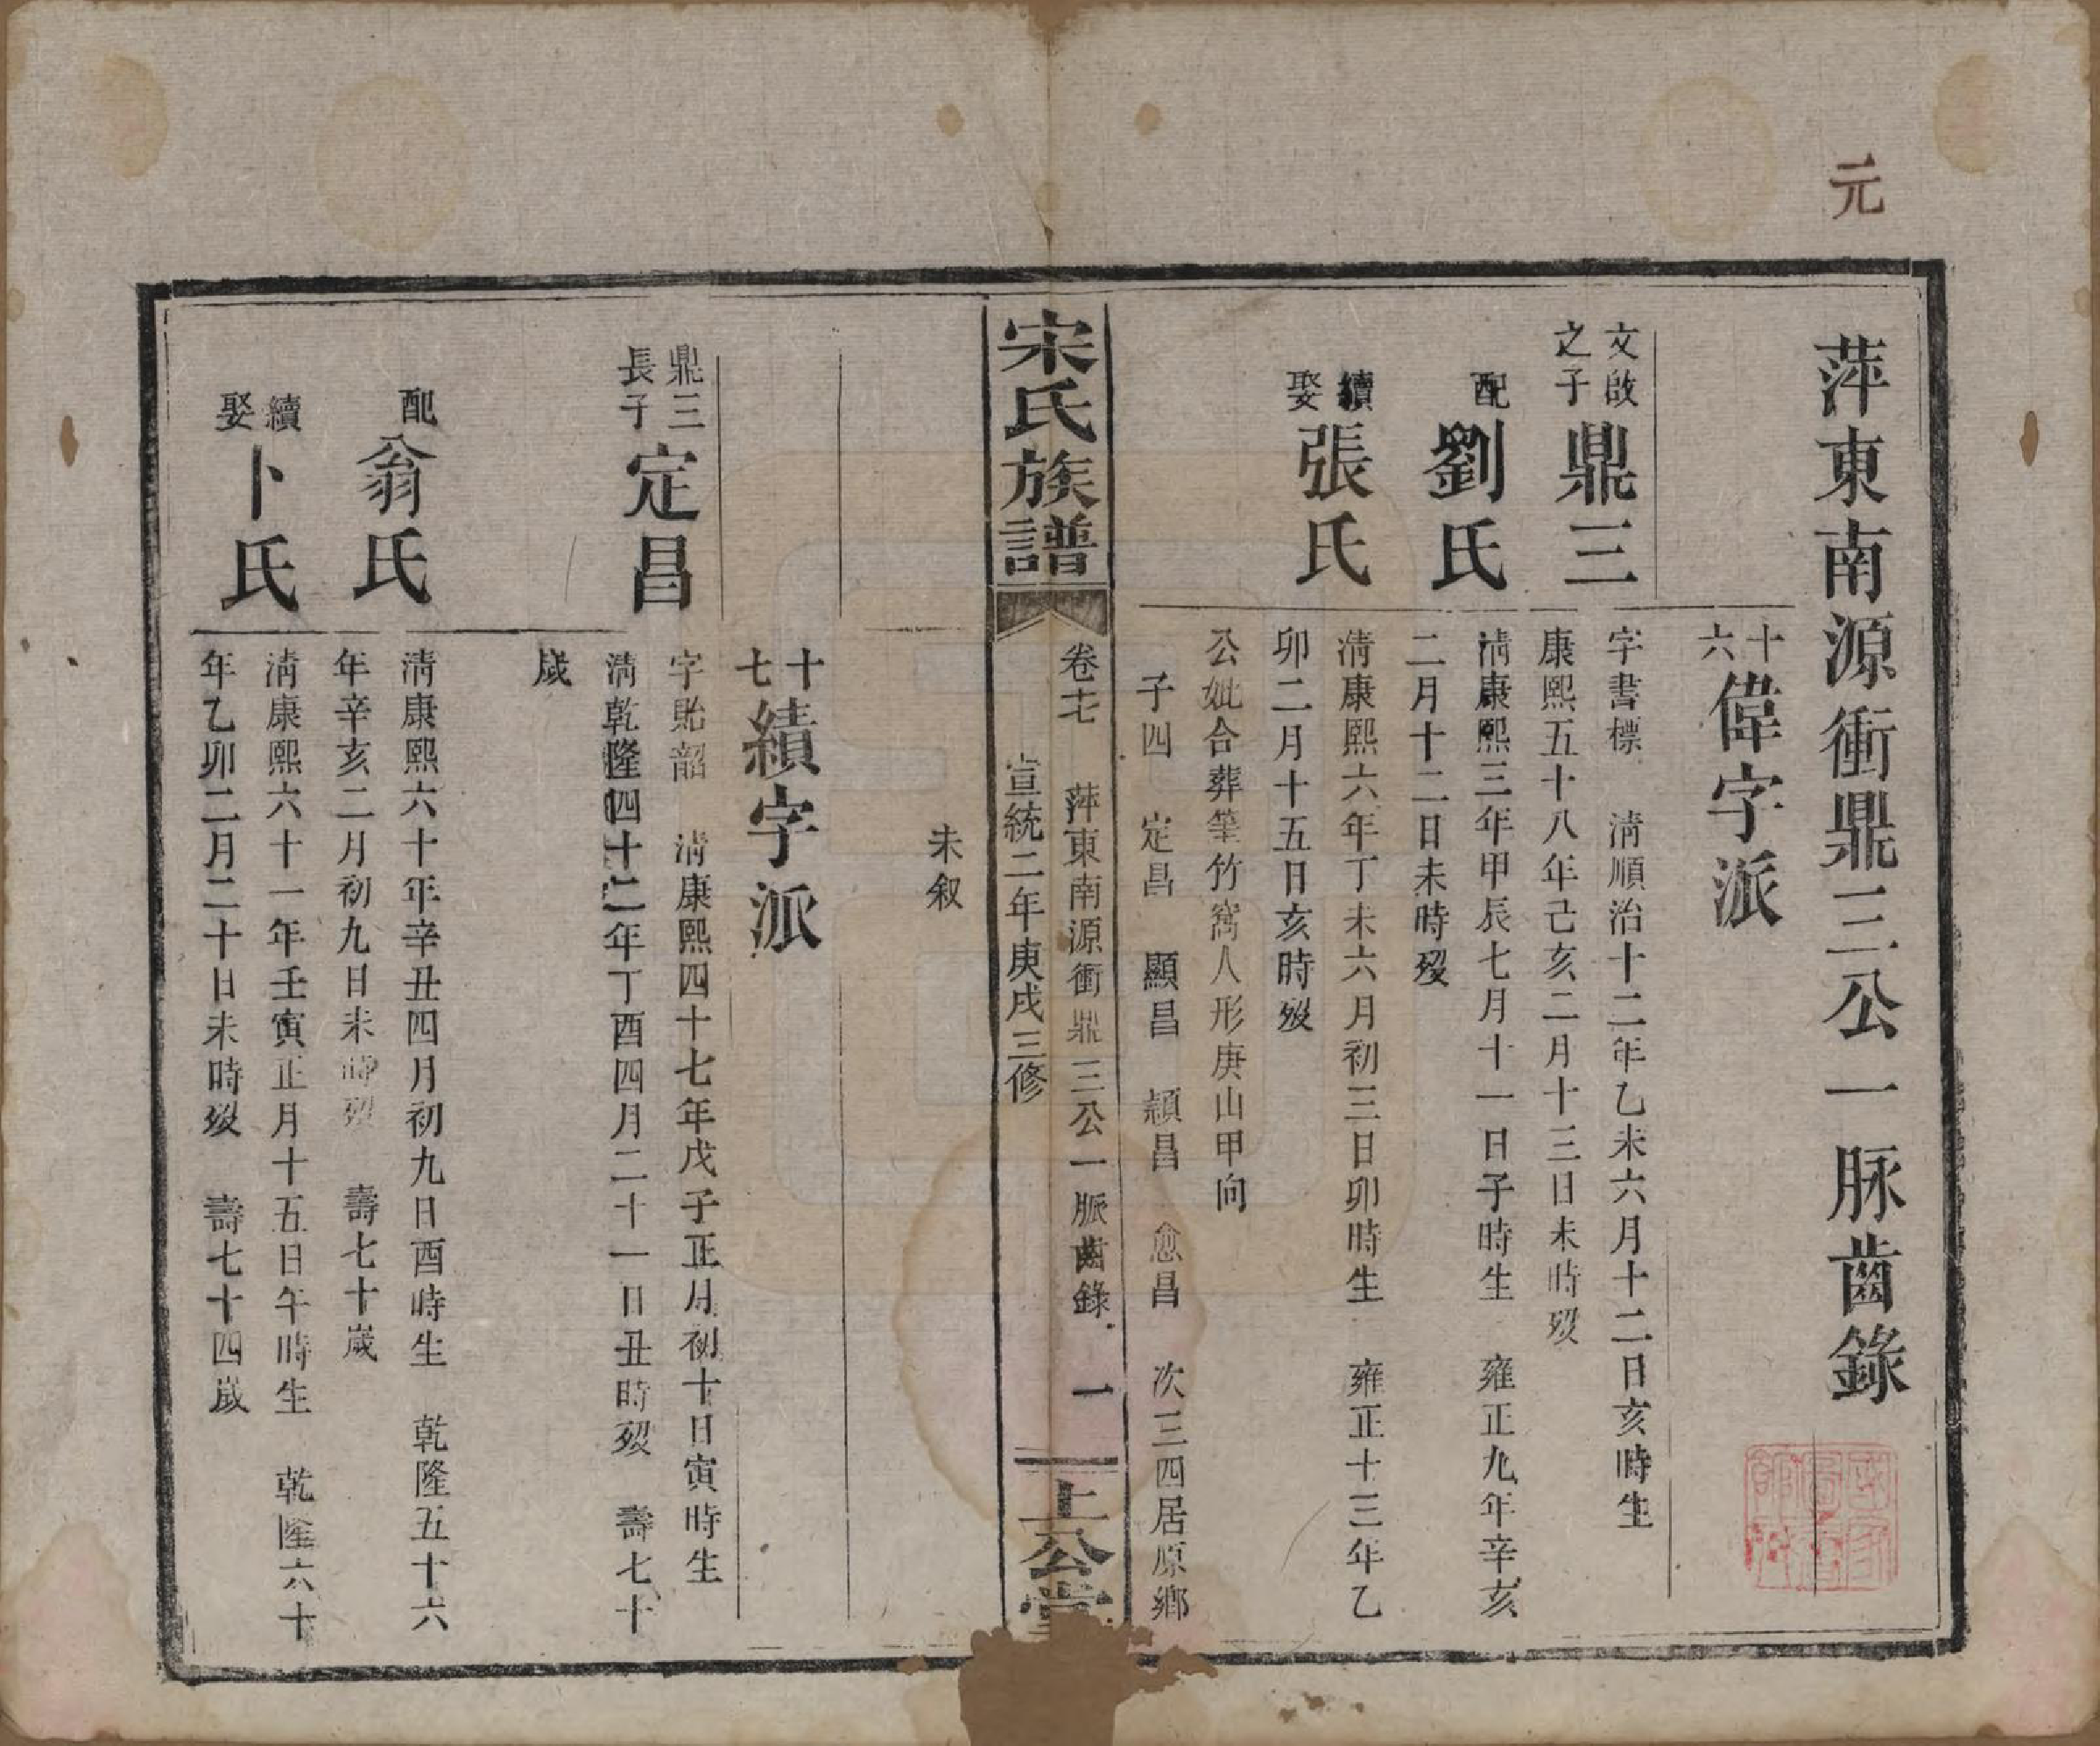 元
萍東南源衝鼎三公一脉齒錄
十六 偉字派
文啟之子 鼎三 字書標 清順治十二年乙未六月十二日亥時生
康熙五十八年己亥二月十三日未時殁
配 劉氏 清康熙三年甲辰七月十一日子時生 雍正九年辛亥
二月十二日未時殁
續娶 張氏 清康熙六年丁未六月初三日卯時生 雍正十三年乙
卯二月十五日亥時殁
公妣合葬筆竹窩人形庚山甲向
子四 定昌 顯昌 頴昌 愈昌 次三四居原鄉
宋氏族譜 卷七 萍東南源衝鼎三公一脈齒錄 一
宣統二年庚戌三修
上公堂
未叙
十七 績字派
鼎三長子 定昌 字貽韶 清康熙四十七年戊子正月初十日寅時生
清乾隆四十二年丁酉四月二十一日丑時殁 壽七十
歲
配 翁氏 清康熙六十年辛丑四月初九日酉時生 乾隆五十六
年辛亥二月初九日未時殁 壽七十歲
續娶 卜氏 清康熙六十一年壬寅正月十五日午時生 乾隆六十
年乙卯二月二十日未時殁 壽七十四歲